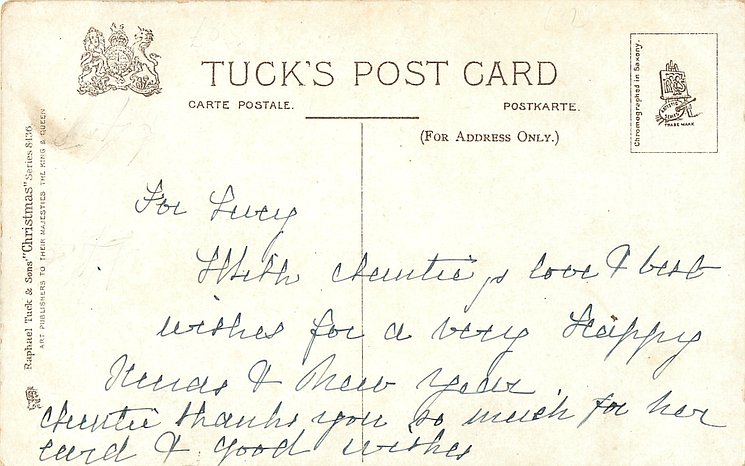 TUCK'S POST CARD
CARTE POSTALE.
POSTKARTE.
(FOR ADDRESS ONLY.)
Chromographed in Saxony.
TRADE MARK
Raphael Tuck & Sons' "Christmas" Series 8136
ART PUBLISHERS TO THEIR MAJESTIES THE KING & QUEEN
For Lucy
With Auntie's love & best
wishes for a very Happy
Xmas & New Year
Auntie thanks you so much for her
card & good wishes